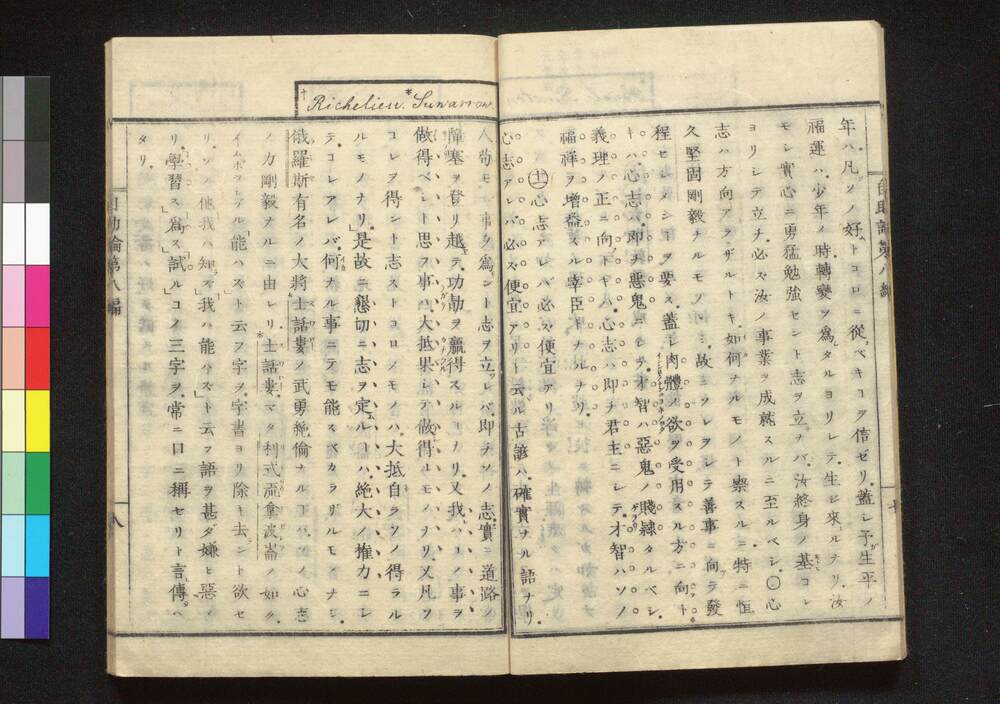 年ハ凡ソノ好ムトコロニ從フベキヿヲ信ゼリ。蓋シ予ガ生平ノ
福運ハ、少年ノ時轉變ヲ爲シタルヨリシテ生ジ來ルナリ、汝
モシ實心ニ勇猛勉強セント志ヲ立ナバ、汝終身ノ基コレ
ヨリシテ立チ、必ズ汝ノ事業ヲ成就スルニ至ルベシ、〇心
志ハ方向アラザルトキ、如何ナルモノト崇スルニ特ニ恒
久堅固剛毅ナルモノノミ、故ニソレヲシテ善事ニ向ラ發
程セシメシヿヲ要ス、蓋シ肉體ノ欲ヲ受用スル方ニ向ト
キハ、心志ハ即チ惡鬼ニシテ、才智ハ惡鬼ノ賤隸タルベシ、
義理ノ正ニ向トキハ、心志ハ即チ君主ニシテ、才智ハソノ
福祥ヲ增益スル宰臣ナルナリ、
㊉心志アレバ必ズ便宜アリ
心志アレバ必ズ便宜アリト云ル古諺ハ、確實ナル語ナリ、
Richelieu. Suwarrow.
人苟モ一事ヲ爲ント志ヲ立レバ、即チソノ志實ニ道路ノ
障塞ヲ登リ越テ、功勛ヲ贏得スルヿナリ、又我ハコノ事ヲ
做得ベシト思フ事ハ、大抵果シテ做得ルモノヲリ、又凡ソ
コレヲ得ント志ストコロノモノハ、大抵自ラソノ得ラル
ルモノナリ」是故ニ懇切ニ志ヲ定ムルヿハ、絶大ノ權力ニシ
テコレアレバ、何ナル事ニテモ能スベカラザルモノナシ、
俄羅斯有名ノ大將士話婁ノ武勇絶倫ナルヿハ、ソノ心志
ノ力剛毅ナルニ由レリ、士話婁マタ利式流拿波崙ノ如ク
能ハズト云フ字ヲ、字書ヨリ除キ去ント欲セ
リ、ソノ他我ハ知ズ」我ハ能ハズ」ト云フ語ヲ甚ダ嫌ヒ惡メ
リ、學習ス」爲ス」試ルコノ三字ヲ、常ニ口ニ稱セリト言傳ハ
タリ、
自助論第八編
八